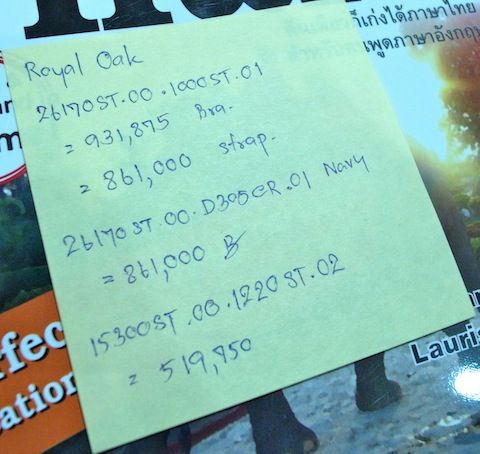 ก็เก่งได้ภาษาไทย
พูดภาษาอังกฤษ
Royal Oak
26170ST.00.1000ST.01
= 931,875 Bra.
= 861,000 strap.
26170ST.00.D305CR.01 Navy
= 861,000 B
15300ST.00.1220ST.02
= 519,750
Lauris